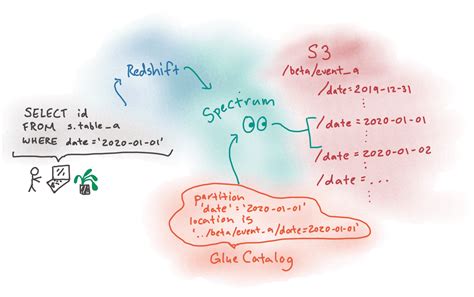 Redshift
SELECT id
FROM s.table_a
WHERE date='2020-01-01'
Spectrum
S3
/beta/event_a
/date=2019-12-31
/date=2020-01-01
/date=2020-01-02
/date=...
partition
'date'='2020-01-01'
location is
'../beta/event_a/date=2020-01-01'
Glue Catalog